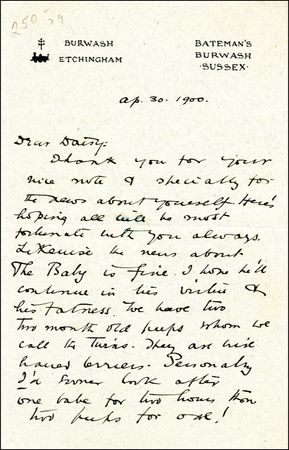 250-79
BURWASH
ETCHINGHAM
BATEMAN'S
BURWASH
SUSSEX.
Ap. 30. 1900.
Dear Daisy:
Thank you for your
nice note & specially for
the news about yourself Here's
hoping all will be most
fortunate with you always.
Likewise the news about
The Baby is fine. I hope he'll
continue in his virtue &
his fatness. We have two
two month old pups whom we
call the Twins. They are wire
haired terriers. Personally
I'd sooner look after
one babe for two hours than
two pups for one!